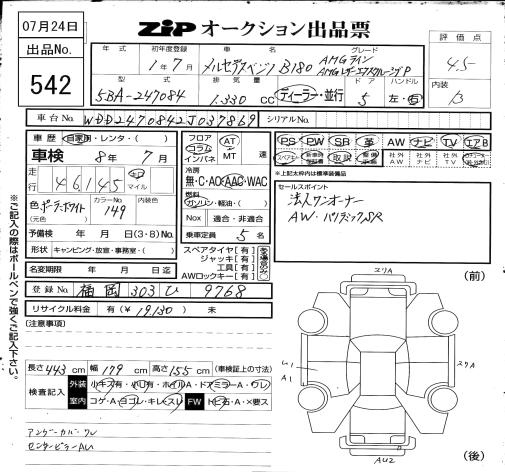 07月24日
出品No.
542
ZIP オークション出品票
年式
初年度登録
車名
グレード
1年7月
メルセデスベンツ B180
AMGライン
AMGレザーエクスクルーシブP
型式
排気量
ディーラー・並行
ドア
ハンドル
5BA-247084
1.330 CC
5
左・右
評価点
4.5
内装
B
車台No.
WDD2470842J037869
シリアルNo.
車歴 自家用・レンタ・( )
車検 8年7月
走行
46145
キロ
マイル
色 ポーラーホワイト
(元色)
カラーNo.
149
内装色
予備検 年 月 日(3・8)No.
形状 キャンピング・放宣・事務室・( )
名変期限 年 月 日迄
フロア
コラム
インパネ
AT
MT
速
冷房
無・C・AC・AAC・WAC
燃料
ガソリン・軽油・( )
Nox 適合・非適合
乗車定員 5名
スペアタイヤ[有]
ジャッキ[有]
工具[有]
AWロックキー[有]
PS PW SR 革 AW ナビ TV エアB
スペアキー
取説
社外AW
社外ナビ
社外TV
*上記太枠内は標準装備品
セールスポイント
法人ワンオーナー
AW、パノラミックSR
登録No. 福岡 303 ひ 9768
リサイクル料金 有(¥19,130) 未
(注意事項)
※ご記入の際はボールペンで強くご記入下さい。
長さ443cm 幅179cm 高さ155cm (車検証上の寸法)
検査記入
外装 小キズ有・小凹有・ホイルA・ドアミラーA・ワレ
室内 コゲ・A・ヨゴレ・キレ・スレ FW トビ石・A・×要ス
アンダーカバーワレ
センターピラーAU
(前)
スリA
ム1
A1
スリA
AU2
(後)